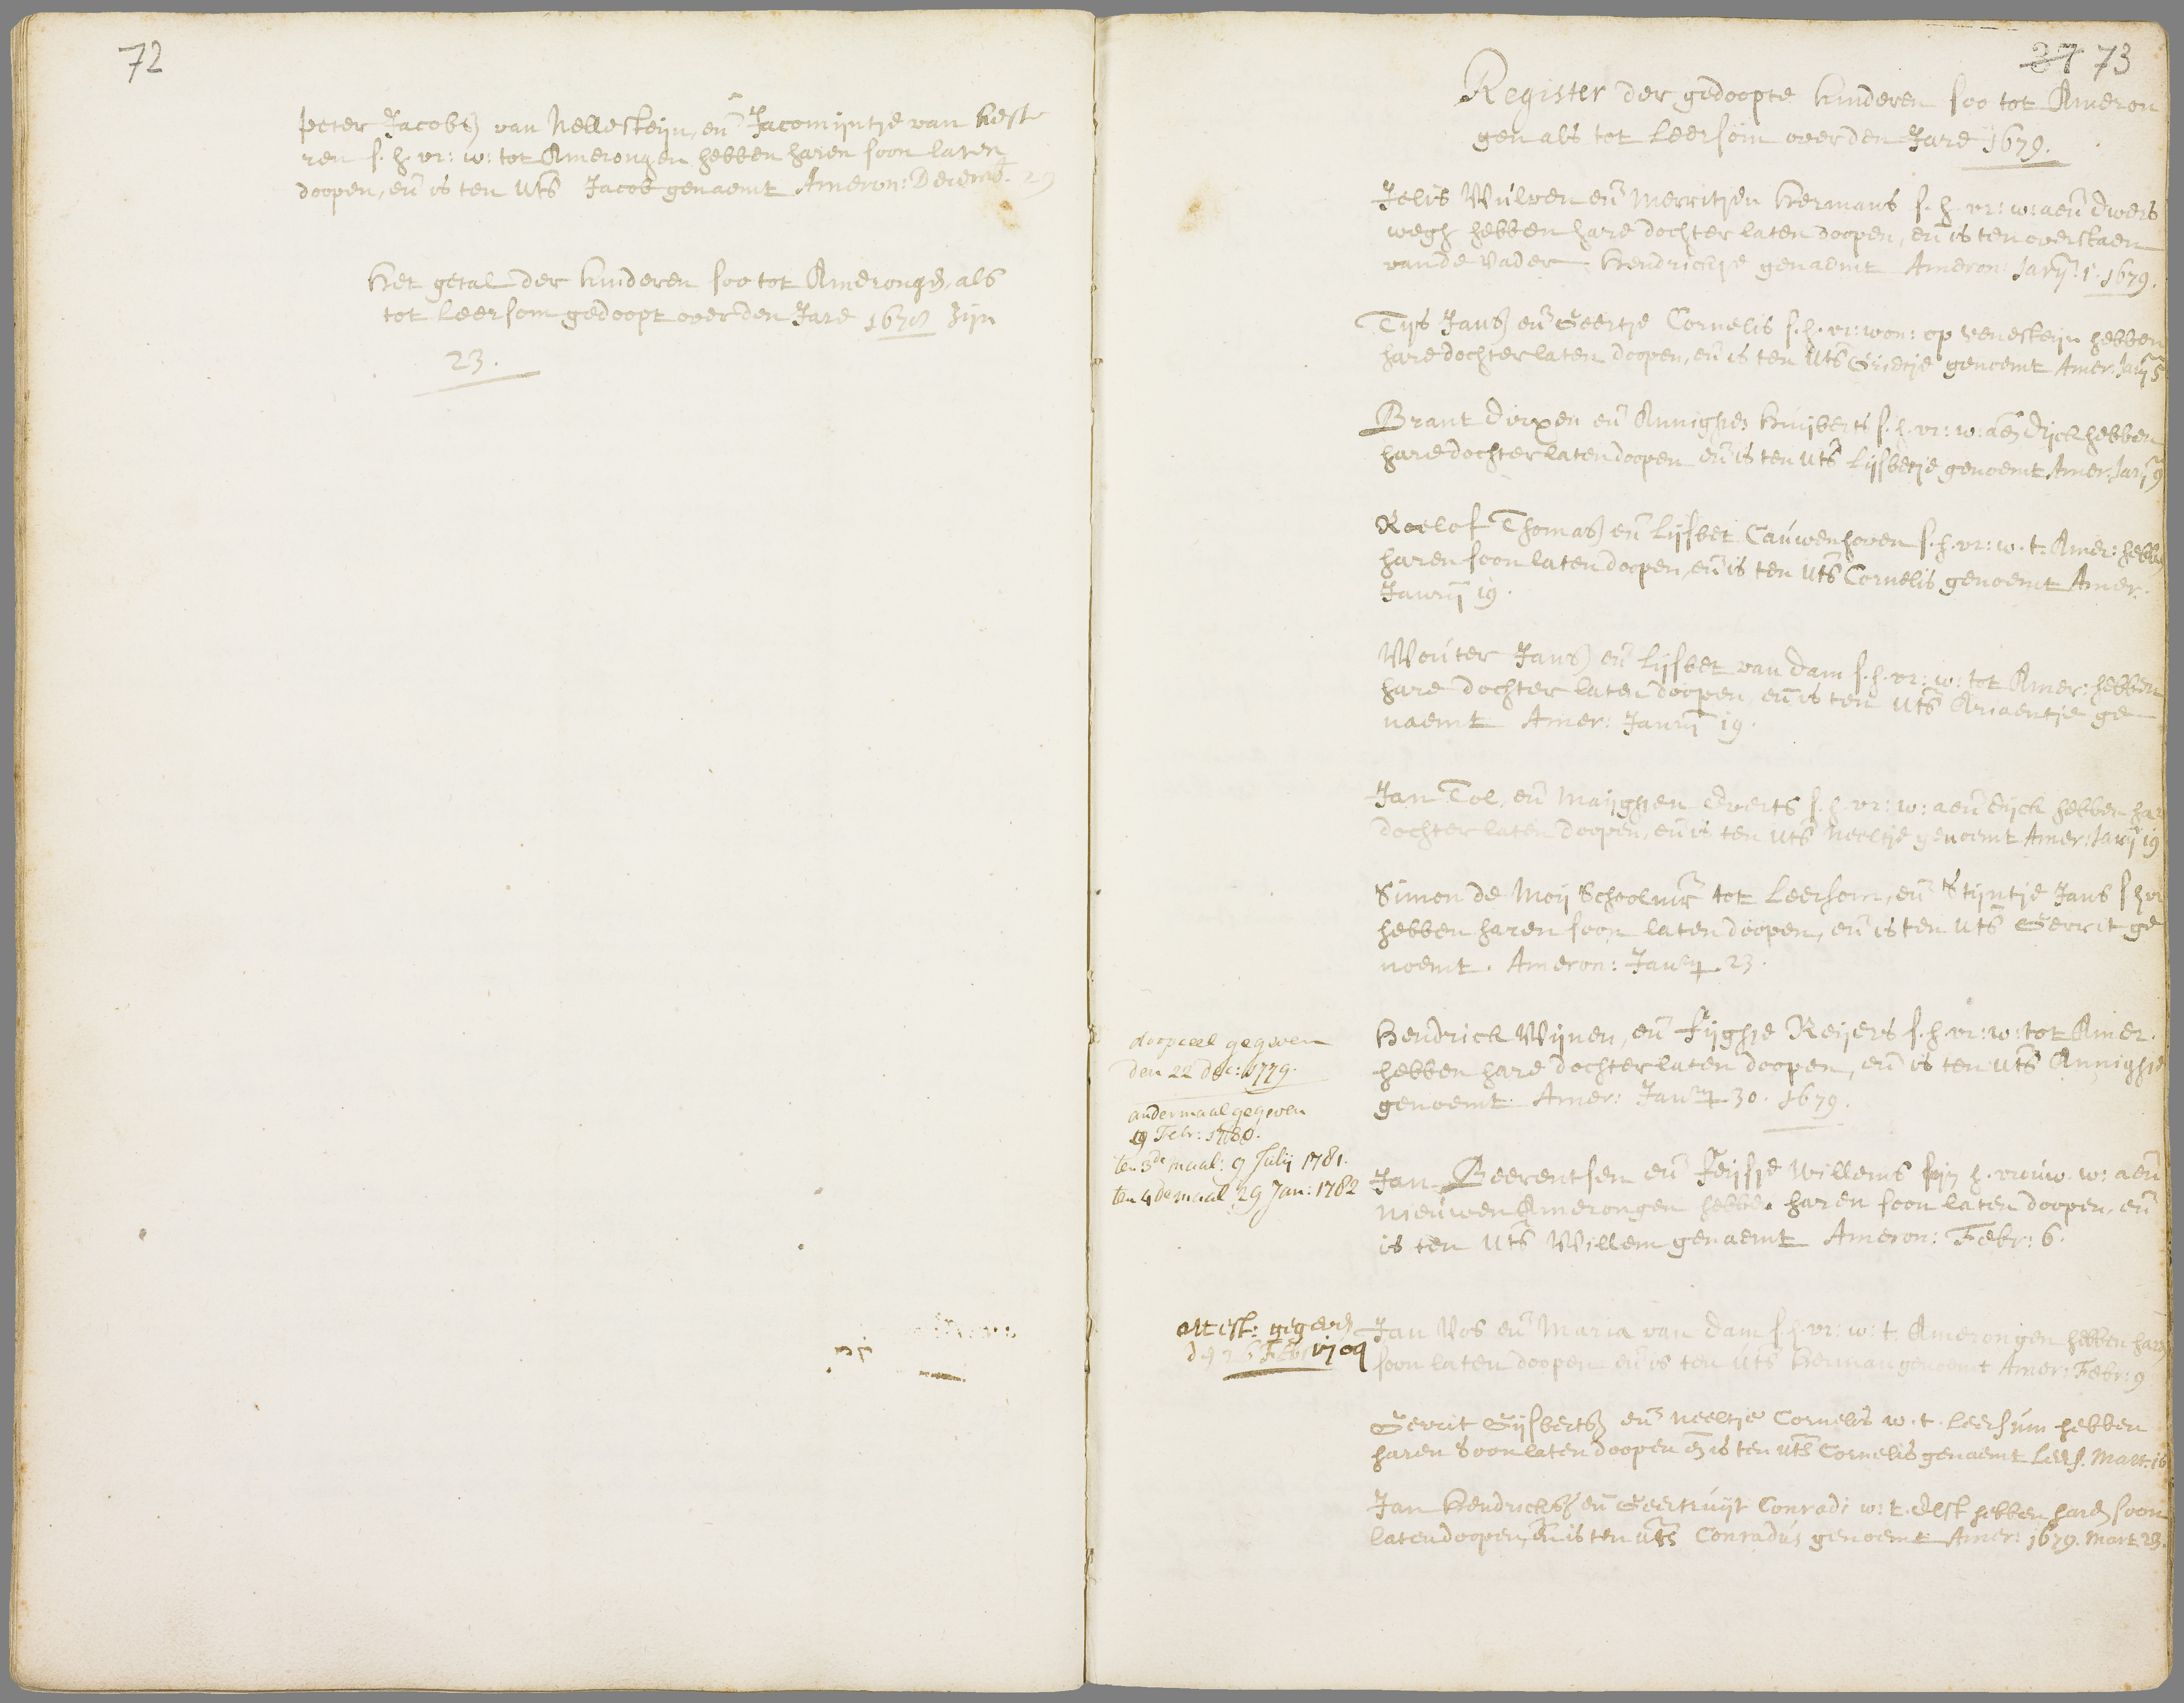 72
Peter Jacobs van Hellesteijn, en Jacomijntje van Heste
ren s. h. vr: w: tot Amerongen hebben haren soon laten
doopen, en is ten uts Jacob genaemt Ameron: Decemb. 29
Het getal der kinderen soo tot Amerongen, als
tot Leersom gedoopt over den Jare 1678 zijn
23.
37 73
Register der gedoopte kinderen soo tot Ameron
gen als tot Leersom over den Jare 1679.
Jelis Wulven en Merritjen Hermans s. h. vr: w: aen dwers
wegh hebben hare dochter laten doopen, en is ten overstaen
van de vader Hendrickje genaemt Ameron: Jarij. 1. 1679.
Tijs Jans en Geertje Cornelis s. h. vr: won: op Senesteijn hebben
hare dochter laten doopen, en is ten uts Grietje genoemt Amer. Jarij 5
Brant dirxen en Annighje Huijberts s. h. vr: w: aen dijck hebben
hare dochter laten doopen en is ten uts Lijsbetje genoemt Amer: Jarij 9
Roelof Thomas en Lijsbet Cauwenhoven s. h. vr: w. t. Amer: hebben
haren soon laten doopen, en is ten uts Cornelis genoemt Amer.
Janrij 19.
Wouter Jans en Lijsbet van dam s. h. vr: w: tot Amer: hebben
hare dochter laten doopen, en is ten uts Ariaentje ge
naemt Amer: Janrij 19.
Jan Tol, en Maijghjen Everts s. h. vr: w: aen dijck hebben har
dochter laten doopen, en is ten uts Neeltje genoemt Amer: Jarij 19
Simon de Moij Schoolmr tot Leersom, en Stijntje Jans s h vr
hebben haren soon laten doopen, en is ten uts Gerrit ge
noemt. Ameron: Jan 23.
doopceel gegeven
den 22 dec: 1779.
andermaal gegeven
19 Febr: 1780.
ten 3de maal: 9 Julij 1781.
ten 4de maal 29 Jan: 1782
Hendrick Wijnen, en Fijghje Reijers s. h. vr: w: tot Amer.
hebben hare dochter laten doopen, en is ten uts Annighje
genoemt. Amer: Jan 30. 1679.
Jan Beerentsen en Feijsje Willems sijn h. vrouw. w: aen
Nieuwen Amerongen hebben haren soon laten doopen, en
is ten uts Willem genaemt Ameron: Febr: 6.
Attest: gegeven
Jan Vos en Maria van dam s h. vr: w: t. Amerongen hebben haren
soon laten doopen en is ten uts Herman genoemt Amer: Febr: 9
Gerrit Gijsberts en Neeltje Cornelis w. t. Leersum hebben
haren Soon laten doopen en is ten uts Cornelis genaemt Leers. Mart. 16
Jan Hendricks en Geertruijt Conradi w: t. Elst hebben haren soon
laten doopen, en is ten uts Conradus genoemt Amer: 1679. Mart. 23.